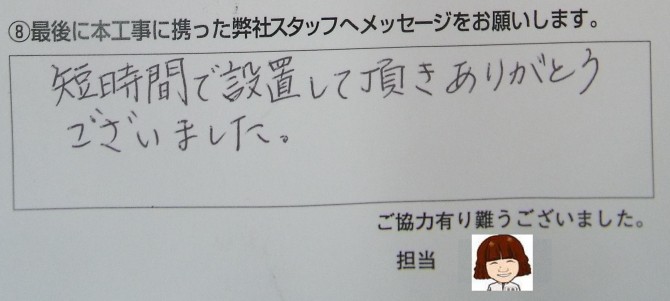 ⑧最後に本工事に携った弊社スタッフへメッセージをお願いします。
短時間で設置して頂きありがとう
ございました。
ご協力有り難うございました。
担当